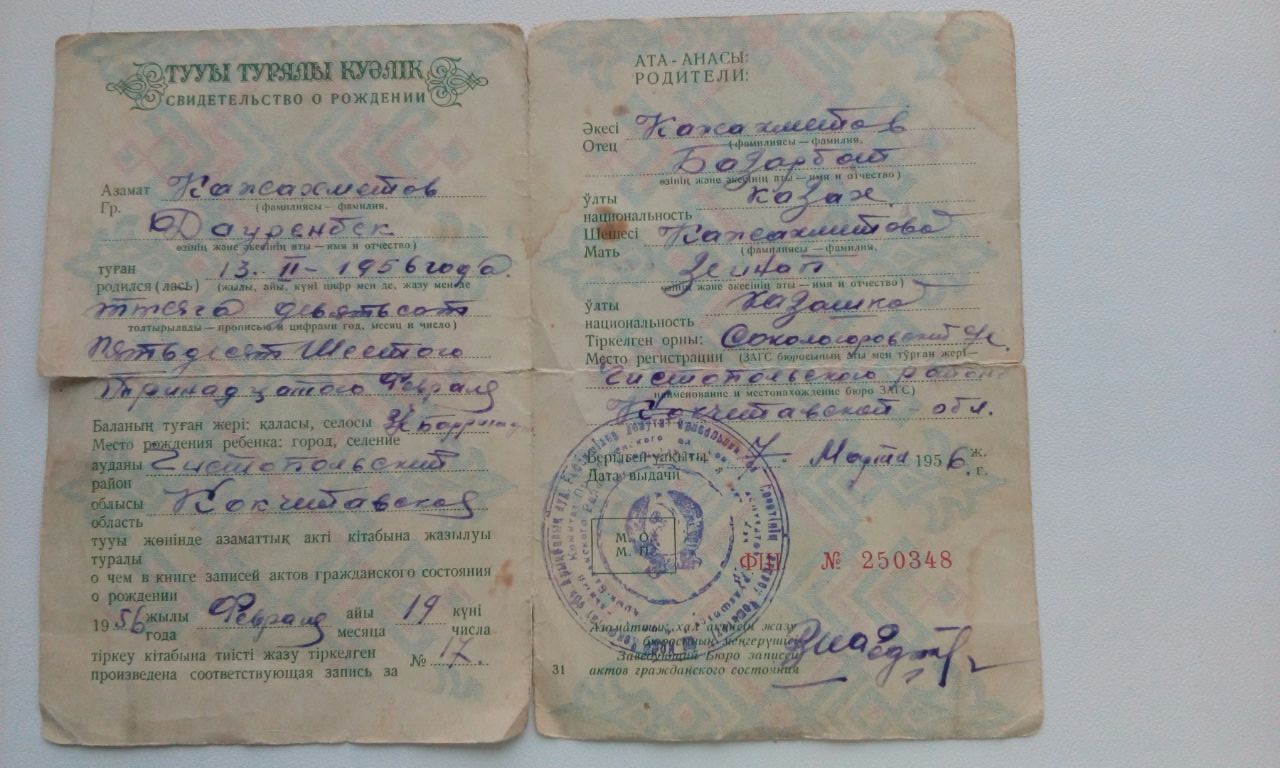 ТУУЫ ТУРАЛЫ КУӘЛІК
СВИДЕТЕЛЬСТВО О РОЖДЕНИИ
Азамат Кажахметов
Гр. (фамилиясы — фамилия,
Дауренбек
өзінің және әкесінің аты — имя и отчество)
туған 13. II – 1956 года.
родился (лась) (жылы, айы, күні цифр мен де, жазу мен де
тысяча девятьсот
толтырылады — прописью и цифрами год, месяц и число)
пятьдесят шестого
тринадцатого февраля
Баланың туған жері: қаласы, селосы
Место рождения ребенка: город, селение
ауданы Чистопольский
район
облысы Кокчетавская
область
тууы жөнінде азаматтық акті кітабына жазылуы
туралы
о чем в книге записей актов гражданского состояния
о рождении
1956 жылы Февраля айы 19 күні
года месяца числа
тіркеу кітабына тиісті жазу тіркелген
произведена соответствующая запись за № 17.
АТА-АНАСЫ:
РОДИТЕЛИ:
Әкесі Кажахметов
Отец (фамилиясы — фамилия,
Базарбай
өзінің және әкесінің аты — имя и отчество)
ұлты казах
национальность
Шешесі Кажахметова
Мать (фамилиясы — фамилия,
Зейнап
өзінің және әкесінің аты — имя и отчество)
ұлты казашка
национальность
Тіркелген орны: Сокологоровский
Место регистрации (ЗАГС бюросының аты мен тұрған жері—
Чистопольского района
наименование и местонахождение бюро ЗАГС)
Кокчетавской обл.
Берілген уақыты 7 Марта 1956 ж.
Дата выдачи г.
М. О.
М. П.
ФШ № 250348
Азаматтық хал актісін жазу
бюросының меңгерушісі
Заведующий Бюро записей
31 актов гражданского состояния